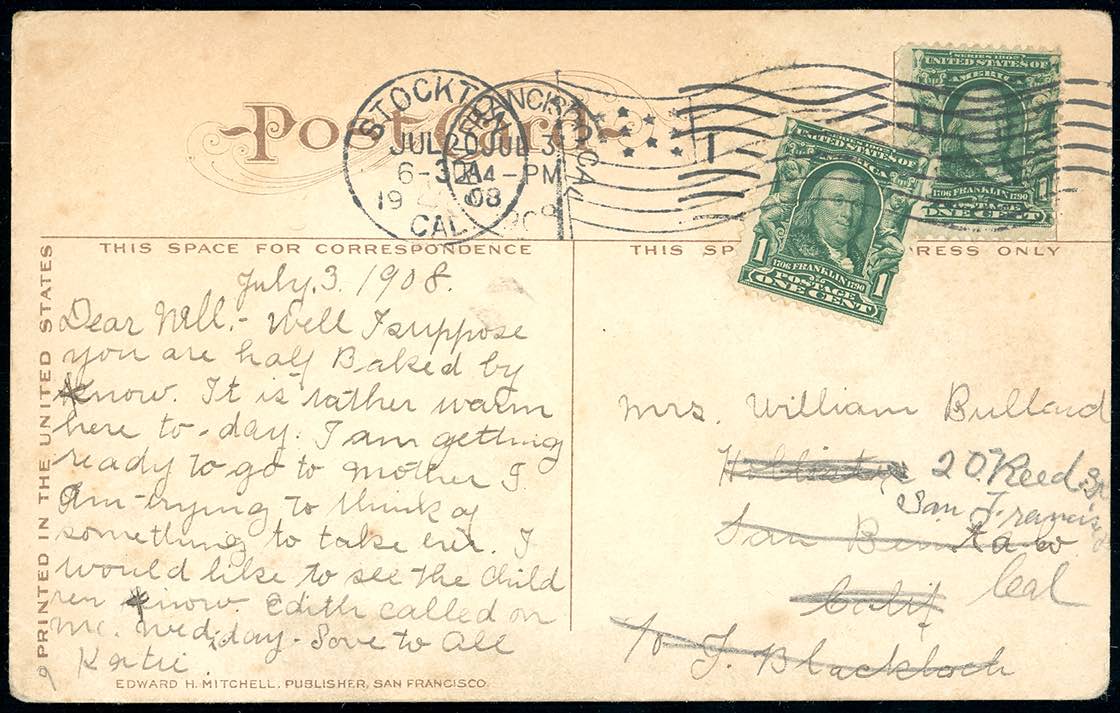 Post Card
STOCKTON
JUL 20
6-30 A
1908
CAL.
FRANCISCO, CAL.
JUL 3
4-PM
1908
1
SERIES 1902
UNITED STATES OF
AMERICA
1706 FRANKLIN 1790
POSTAGE
ONE CENT
1
SERIES 1902
UNITED STATES OF
AMERICA
1 1706 FRANKLIN 1790 1
POSTAGE
ONE CENT
THIS SPACE FOR CORRESPONDENCE
THIS SP RESS ONLY
PRINTED IN THE UNITED STATES
July, 3. 1908.
Dear Will.- Well I suppose
you are half Baked by
know. It is rather warm
here to-day. I am getting
ready to go to mother I
am trying to think of
something to take her. I
would like to see the Child
ren know. Edith called on
me. Wed,day- Love to All
Katie.
Mrs. William Bullard
Hollister 20 Reed St
San Francisco
San Benito Co
Calif Cal
c/o J. Blackloch
EDWARD H. MITCHELL, PUBLISHER, SAN FRANCISCO